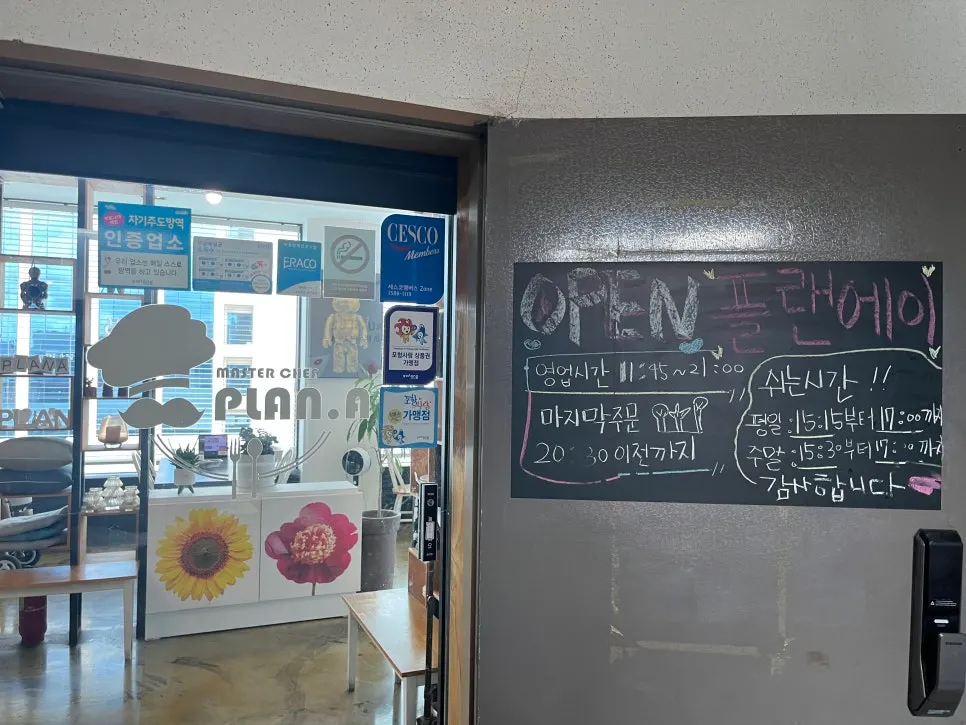 자기주도방역
인증업소
우리 업소는 매일 스스로
방역을 하고 있습니다.
ERACO
CESCO
Members
세스코멤버스 Zone
1588-1119
포항사랑 상품권
가맹점
가맹점
MASTER CHEF
PLAN.A
PLANA
PLAN
OPEN 플랜에이
영업시간 11:45~21:00
마지막주문
20:30 이전까지
쉬는시간 !!
평일 : 15:15부터 17:00까지
주말 : 15:30부터 17:00까지
감사합니다